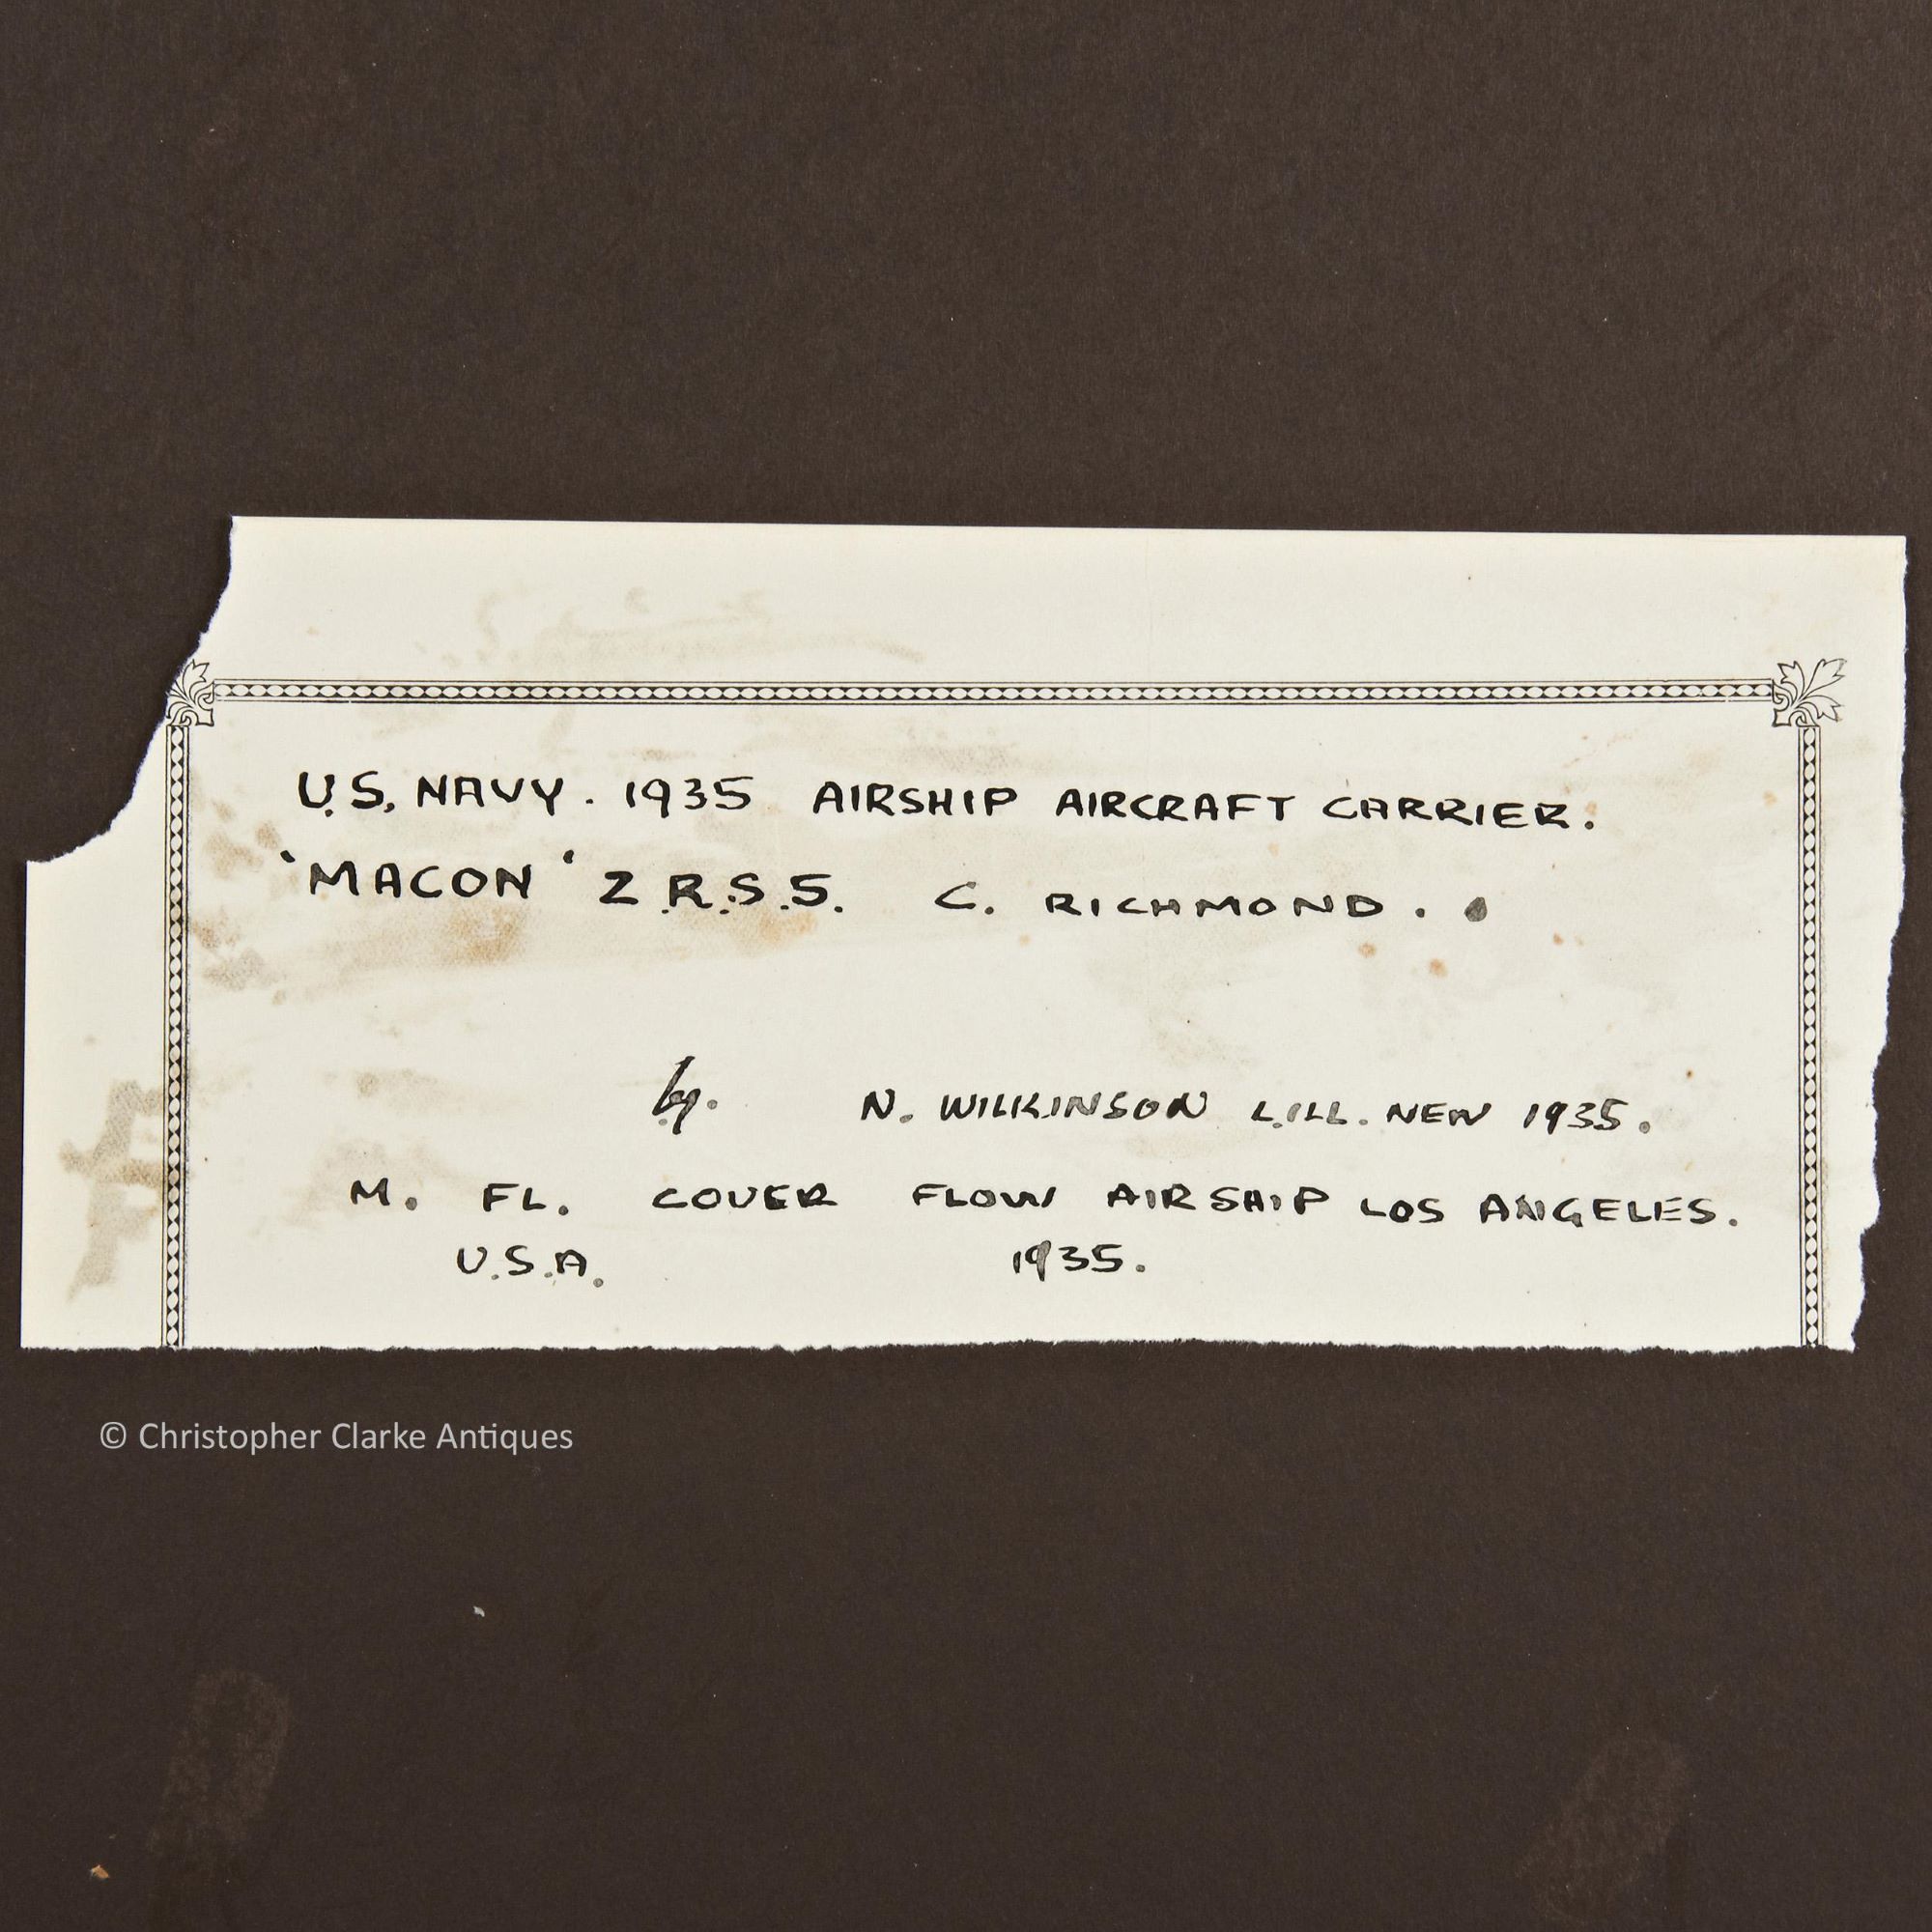 U.S. NAVY. 1935 AIRSHIP AIRCRAFT CARRIER.
'MACON' Z.R.S.5. C. RICHMOND.
by. N. WILKINSON L.ILL. NEW 1935.
M. FL. COVER FLOW AIRSHIP LOS ANGELES.
U.S.A. 1935.
© Christopher Clarke Antiques